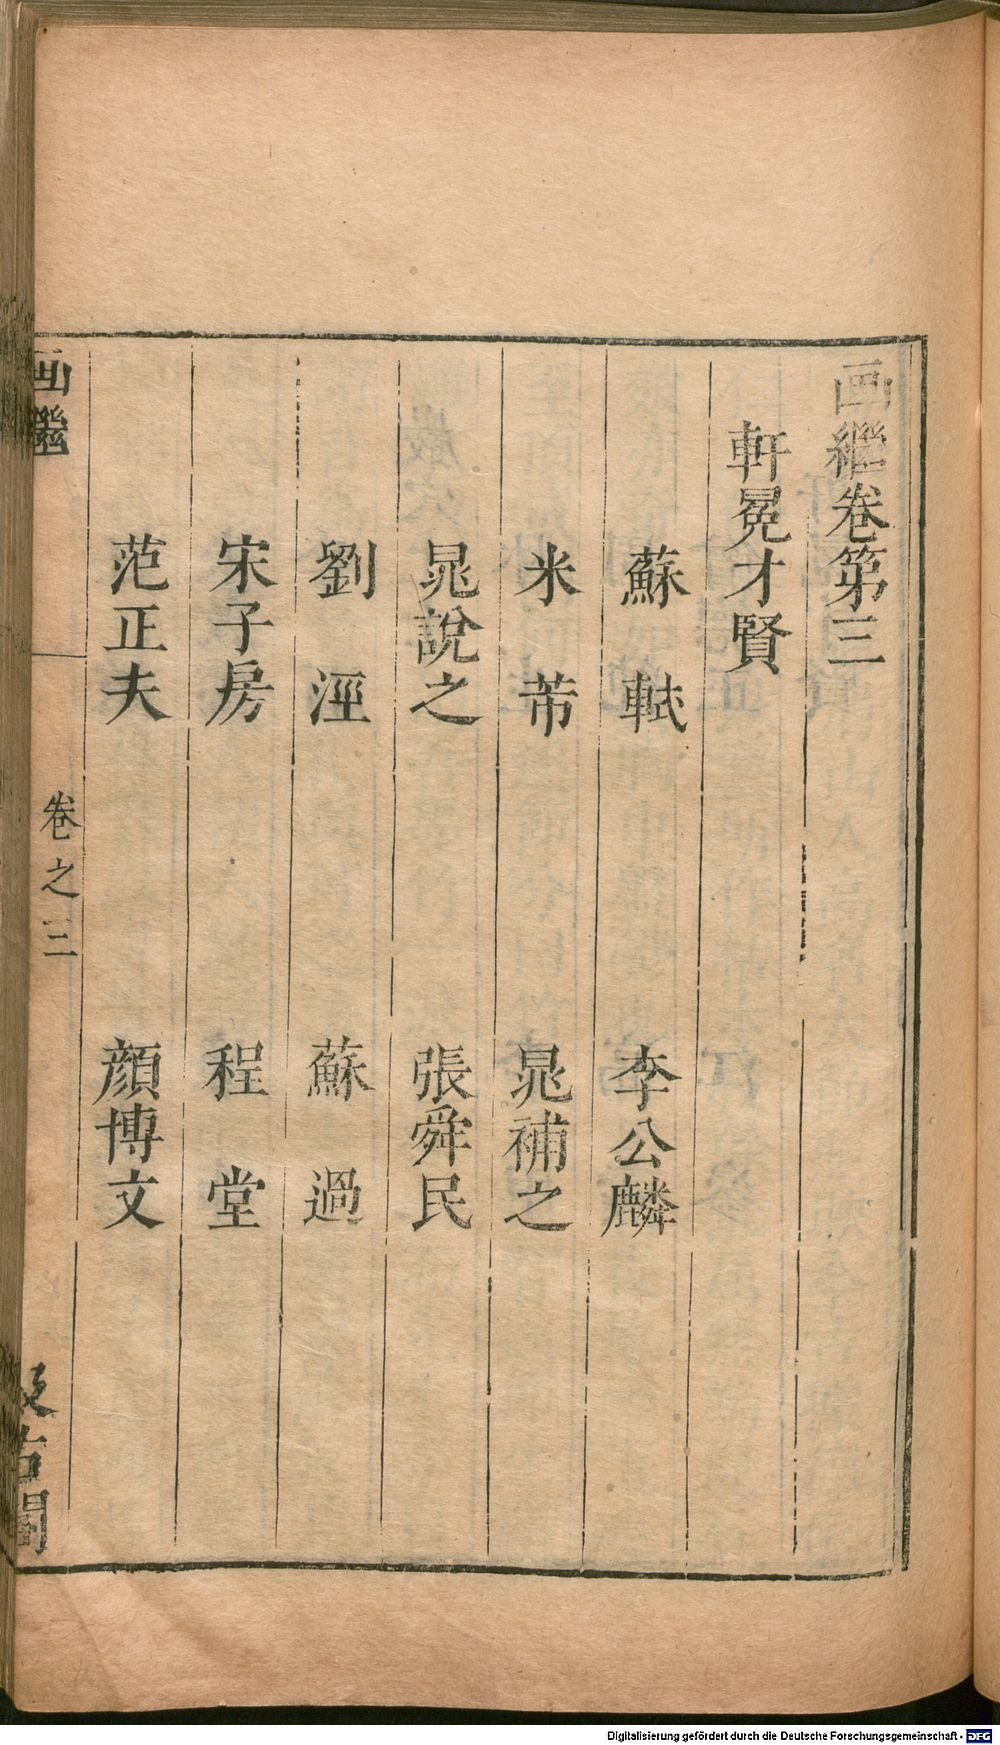 画繼卷第三
軒冕才賢
蘇軾　李公麟
米芾　晁補之
晁說之　張舜民
劉涇　蘇過
宋子房　程堂
范正夫　顔博文
画繼　卷之三　汲古閣
Digitalisierung gefördert durch die Deutsche Forschungsgemeinschaft - DFG